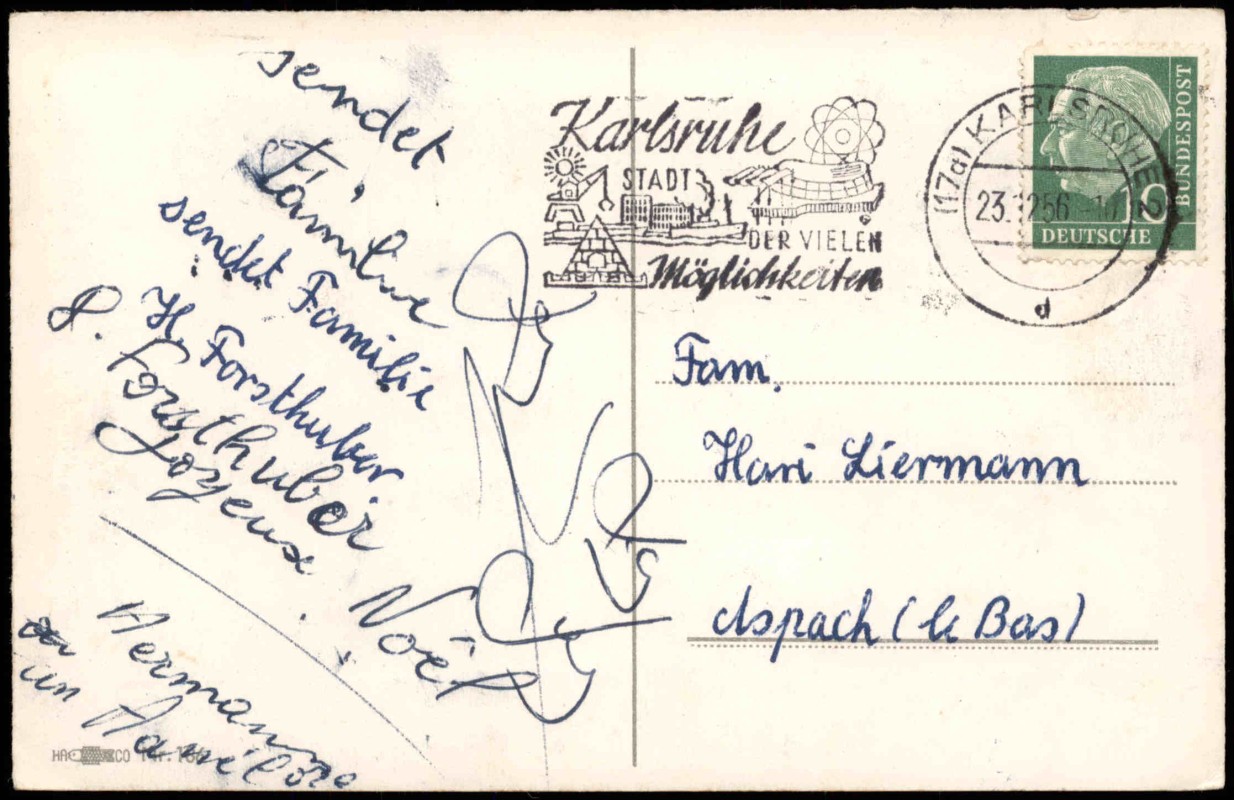 sendet
Familie
sendet Familie
H. Forsthuber
R. Forsthuber
Joyeux Noël
Hermann
un
Karlsruhe
STADT
DER VIELEN
Möglichkeiten
(17a) KARLSRUHE 2
23.1256
d
BUNDESPOST
DEUTSCHE
Fam.
Hari Liermann
Aspach (le Bas)